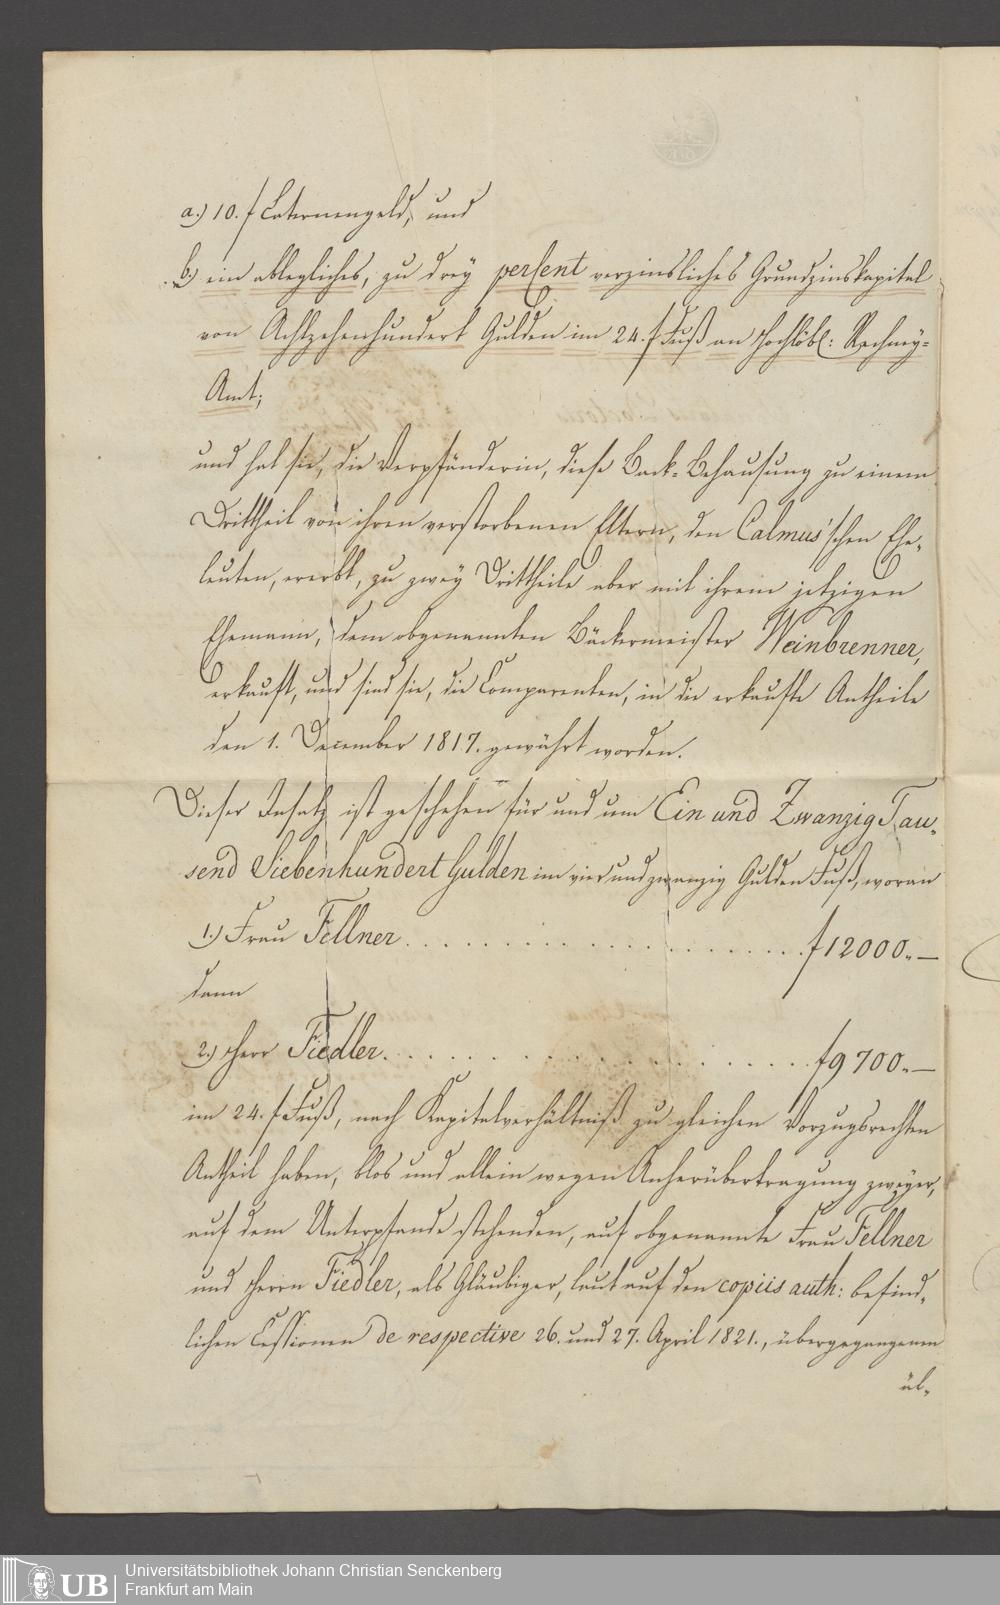 a.) 10. f Laternengeld, und
b.) ein ablegliches, zu drey perCent verzinsliches Grundzinskapital
von Achtzehenhundert Gulden im 24. f Fuß an Hochlöbl: Rechney-
Amt;
und hat sie, die Verpfänderin, diese Back-Behausung zu einem
Drittheil von ihren verstorbenen Eltern, den Calmus'schen Ehe-
leuten, ererbt, zu zwey Drittheile aber mit ihrem jetzigen
Ehemann, dem obgenannten Bäckermeister Weinbrenner,
erkauft, und sind sie, die Comparenten, in die erkaufte Antheile
den 1. December 1817. gewährt worden.
Dieser Insatz ist geschehen für und um Ein und Zwanzig Tau-
send Siebenhundert Gulden im vier und zwanzig Gulden Fuß, woran
1.) Frau Fellner . . . . . . . . . . . . . . . . . . . . f 12000.—
dann
2.) Herr Fiedler . . . . . . . . . . . . . . . . . . . . f 9700.—
im 24. f Fuß, nach Kapitalverhältniß zu gleichen Vorzugsrechten
Antheil haben, blos und allein wegen Anherübertragung zweyer,
auf dem Unterpfande stehenden, auf obgenannte Frau Fellner
und Herrn Fiedler, als Gläubiger, laut auf den copiis auth: befind-
lichen Cessionen de respective 26. und 27. April 1821., übergegangenen
äl-
UB
Universitätsbibliothek Johann Christian Senckenberg
Frankfurt am Main